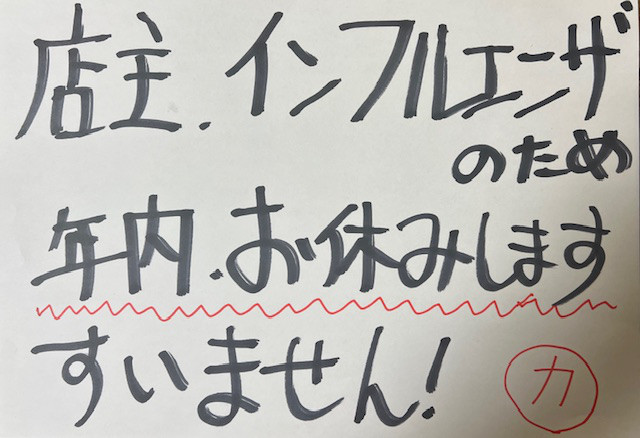 店主、インフルエンザ
のため
年内、お休みします
すいません!
カ